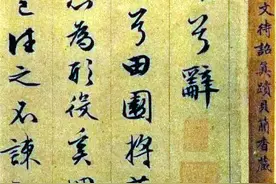 文待詔真蹟貝簡香藏
兮辭
兮田園將
心為形役奚
已往之不諫